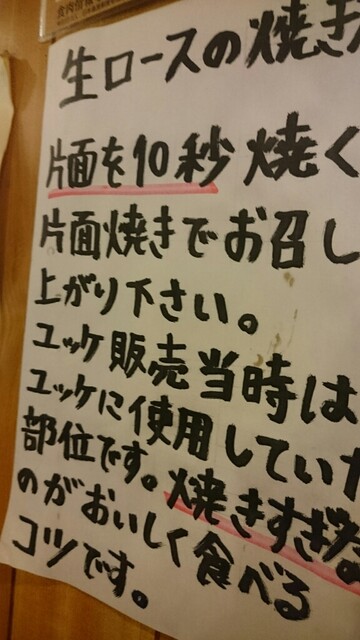 生ロースの焼き
片面を10秒焼く
片面焼きでお召し
上がり下さい。
ユッケ販売当時は
ユッケに使用していた
部位です。焼きすぎ
のがおいしく食べる
コツです。